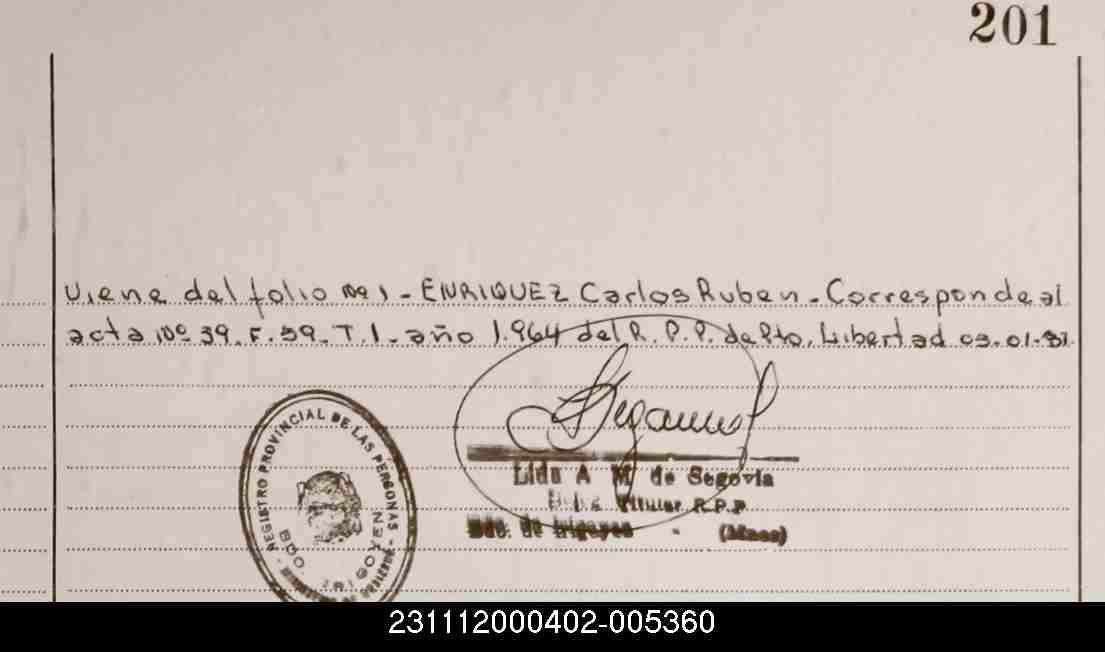 201
Viene del folio Nº 1 - ENRIQUEZ Carlos Ruben - Corresponde al
acta Nº 39. F. 39. T. 1 - año 1.964 del R. P. P. de Pto. Libertad 03.01.
Lida A M de Segovia
Titular R.P.P
Bdo. de Irigoyen - (Mnes)
REGISTRO PROVINCIAL DE LAS PERSONAS
BDO. IRIGOYEN
231112000402-005360